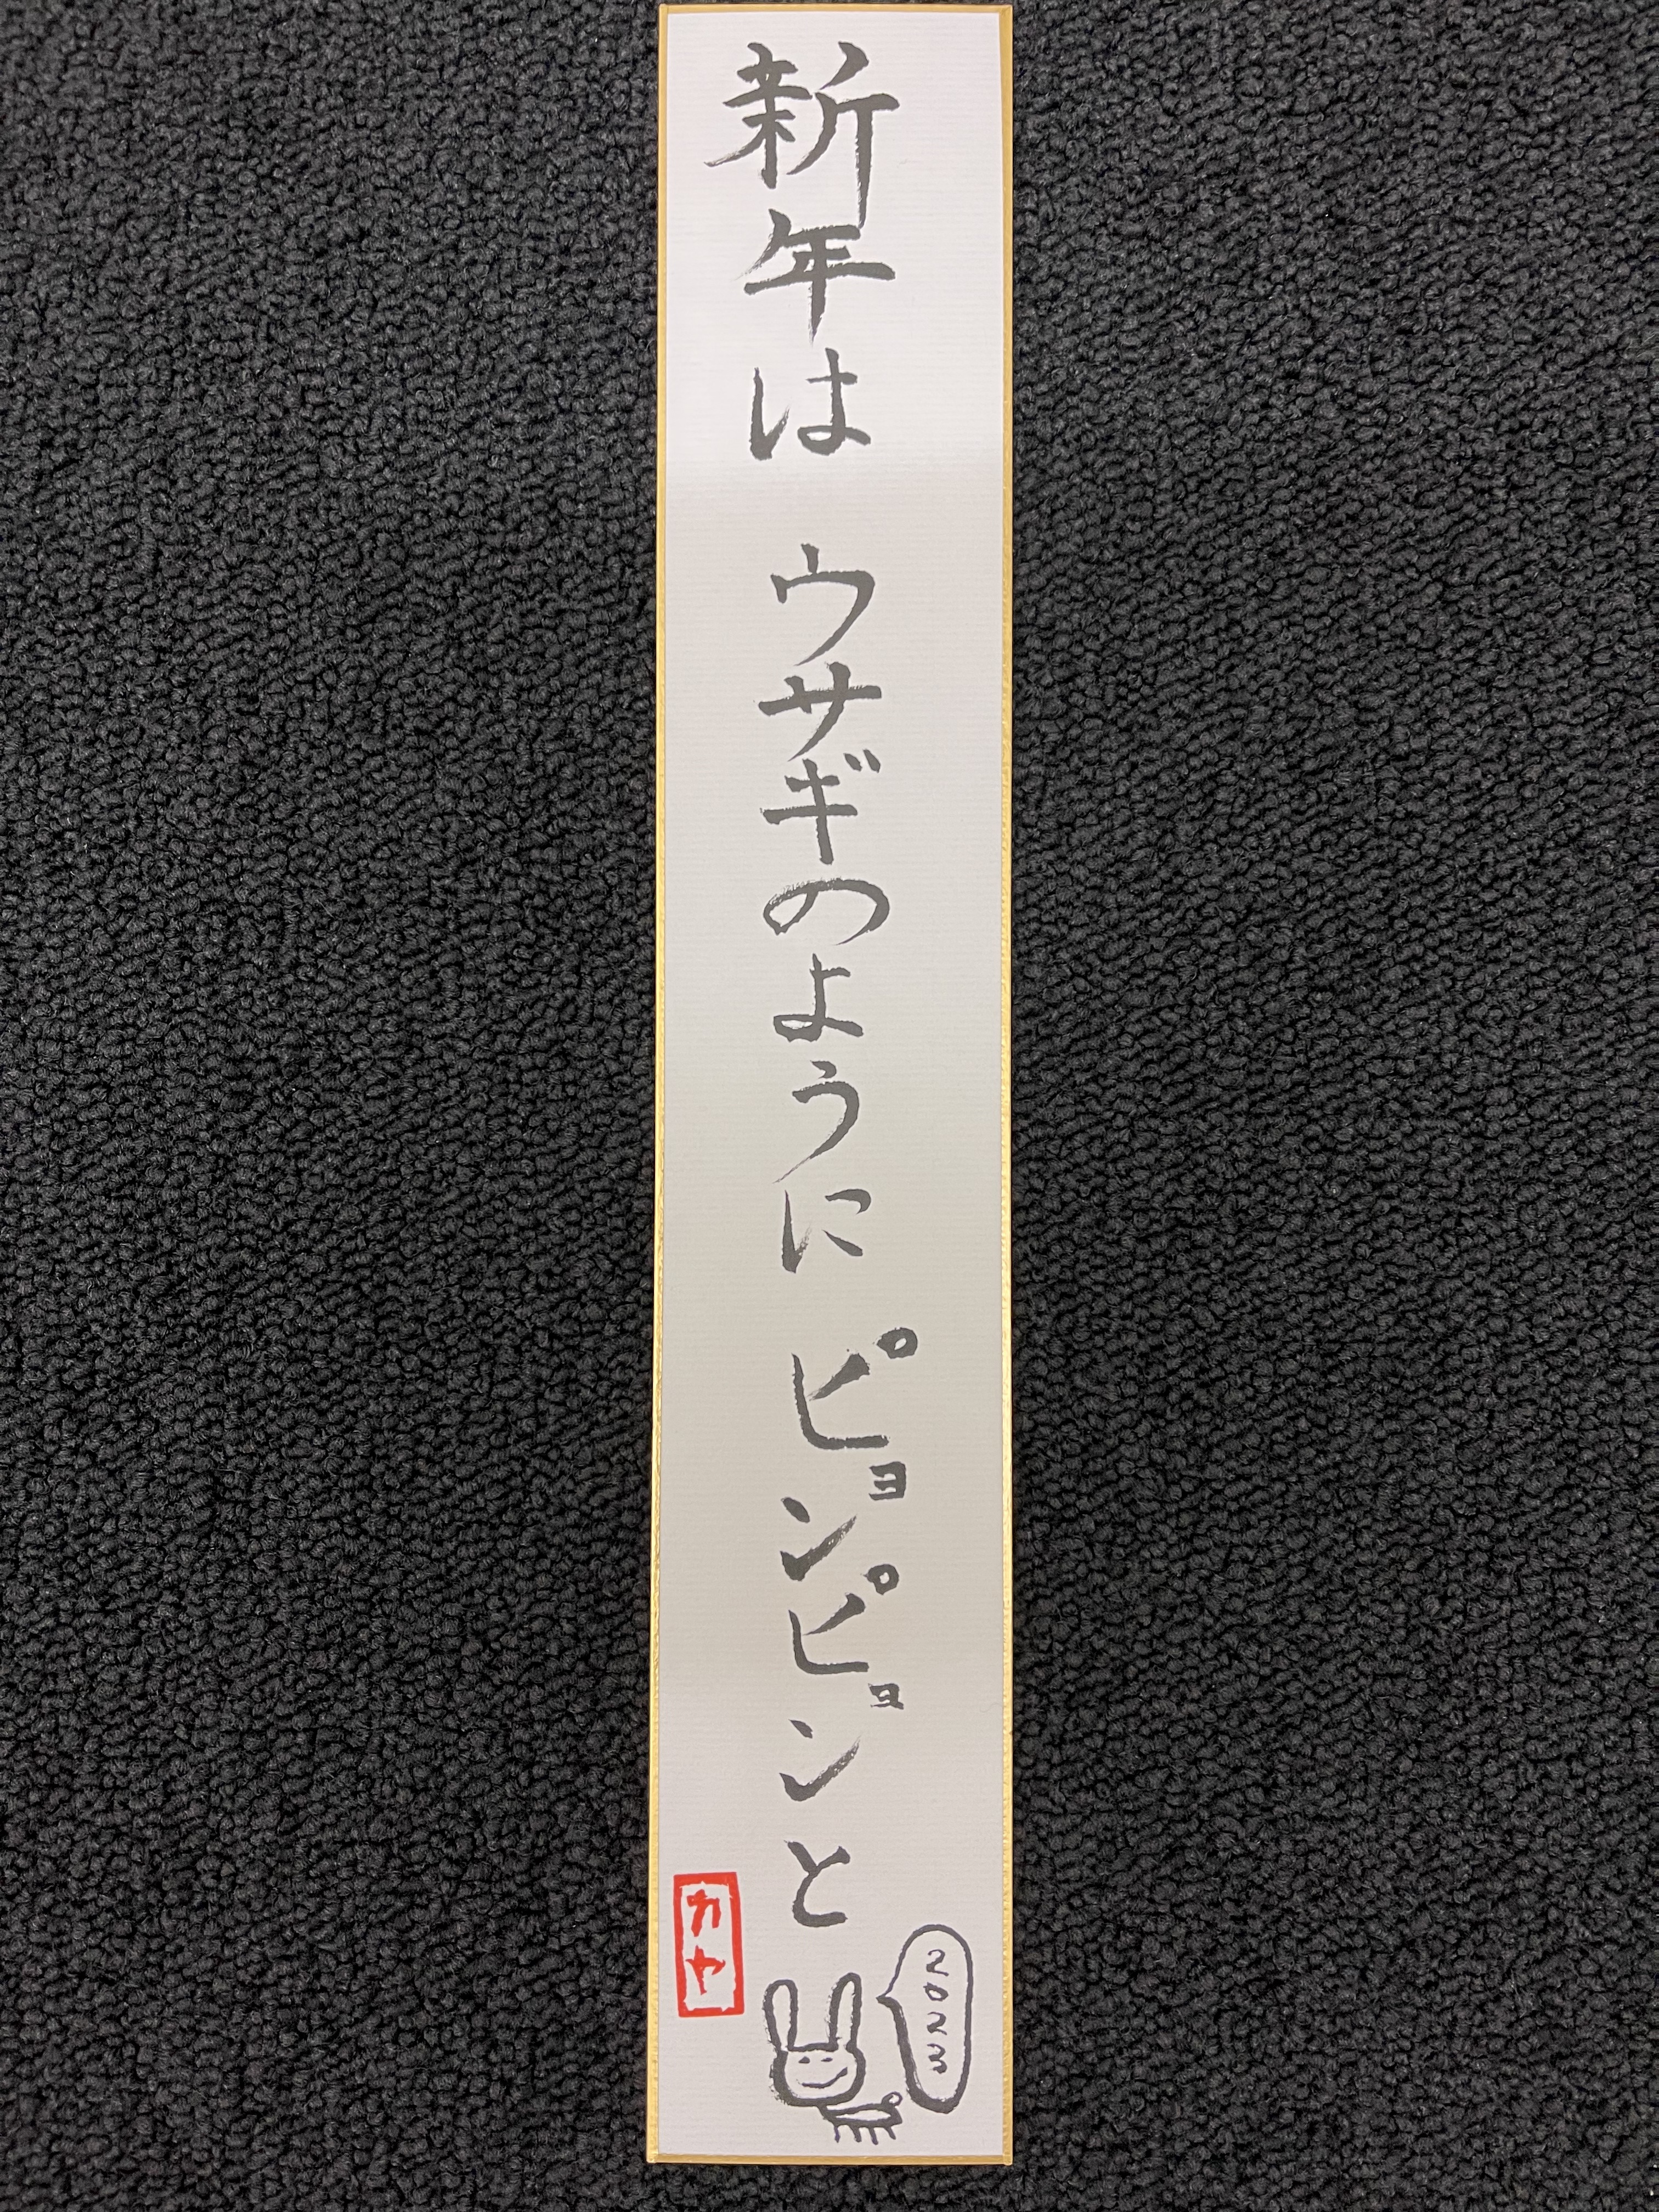 新年は ウサギのように ピョンピョンと
2023
カヤ